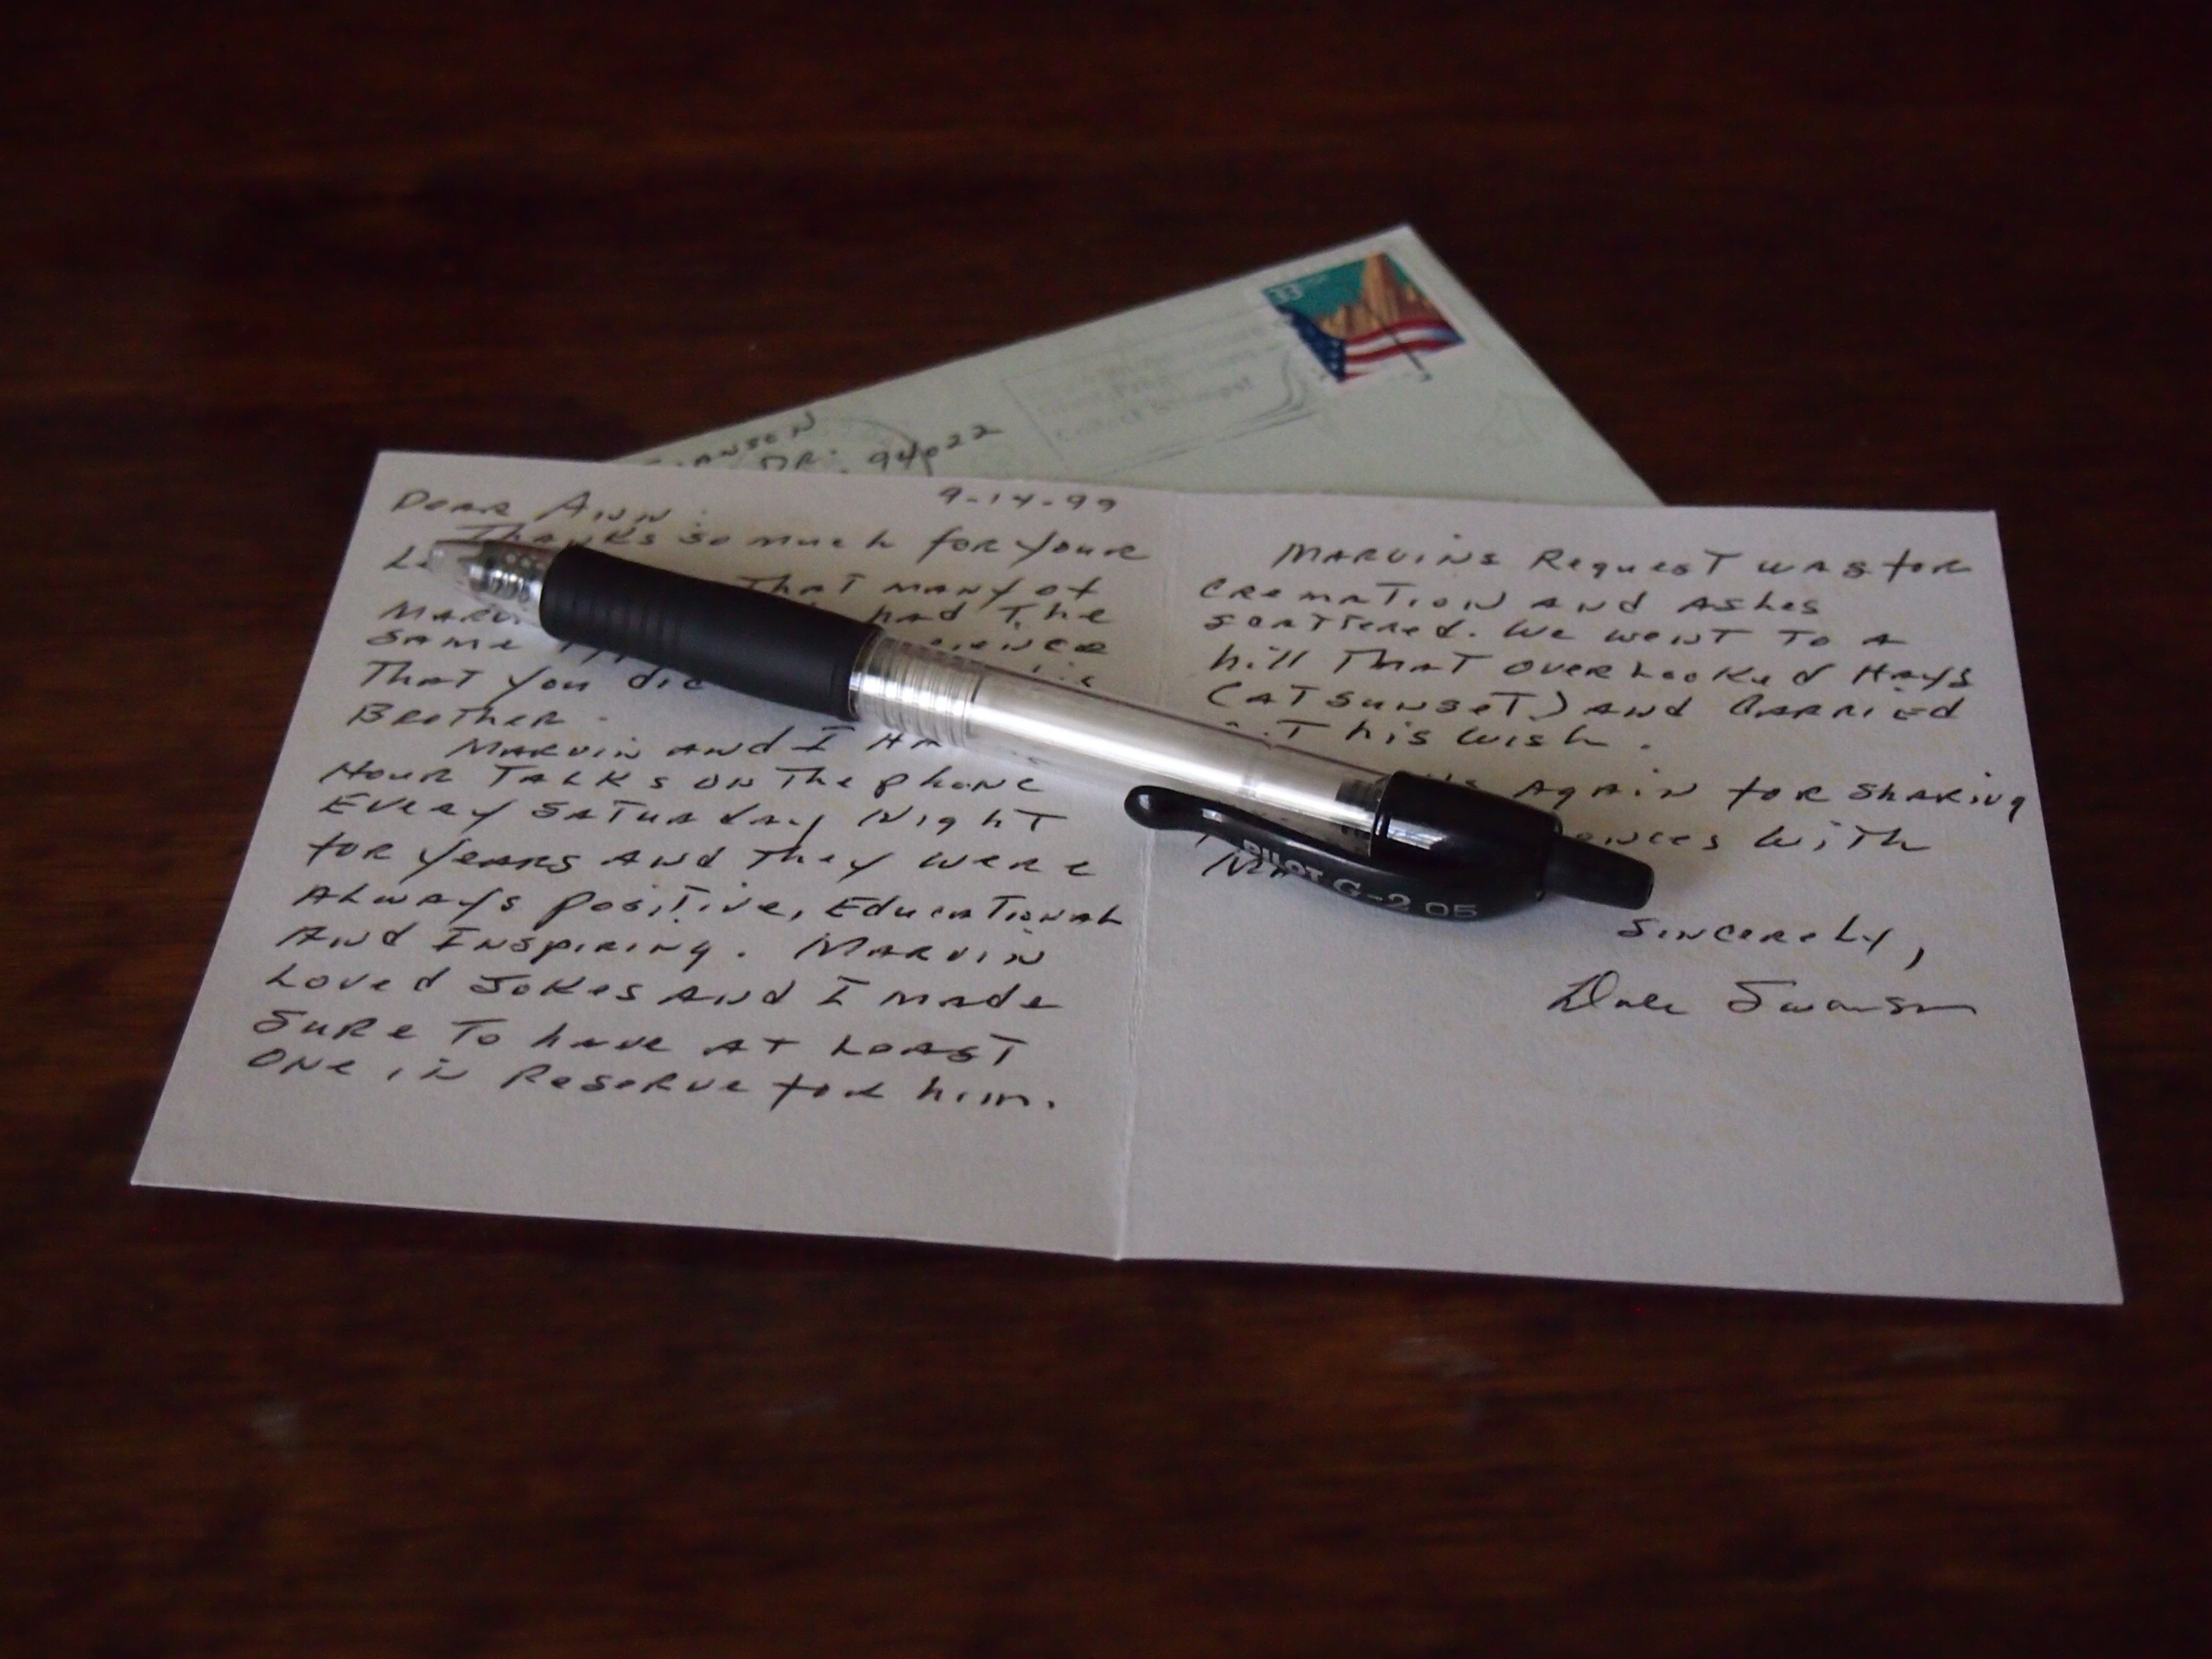 33
ANSON
DR. 94022
9-14-99
Dear Ann:
Thanks so much for your
That many of
had The
same
That you
Brother.
Marvin and I
Hour Talks on The phone
Every Saturday Night
for years and They were
Always positive, Educational
And Inspiring. Marvin
Loved Jokes and I made
Sure To have at Least
one in Reserve for him.
Marvins Request was for
cremation and ashes
scattered. We went To a
hill That overlooked Hays
(at sunset) and carried
This wish.
Again for sharing
with
Sincerely,
Dale Swanson
PILOT G-2 05